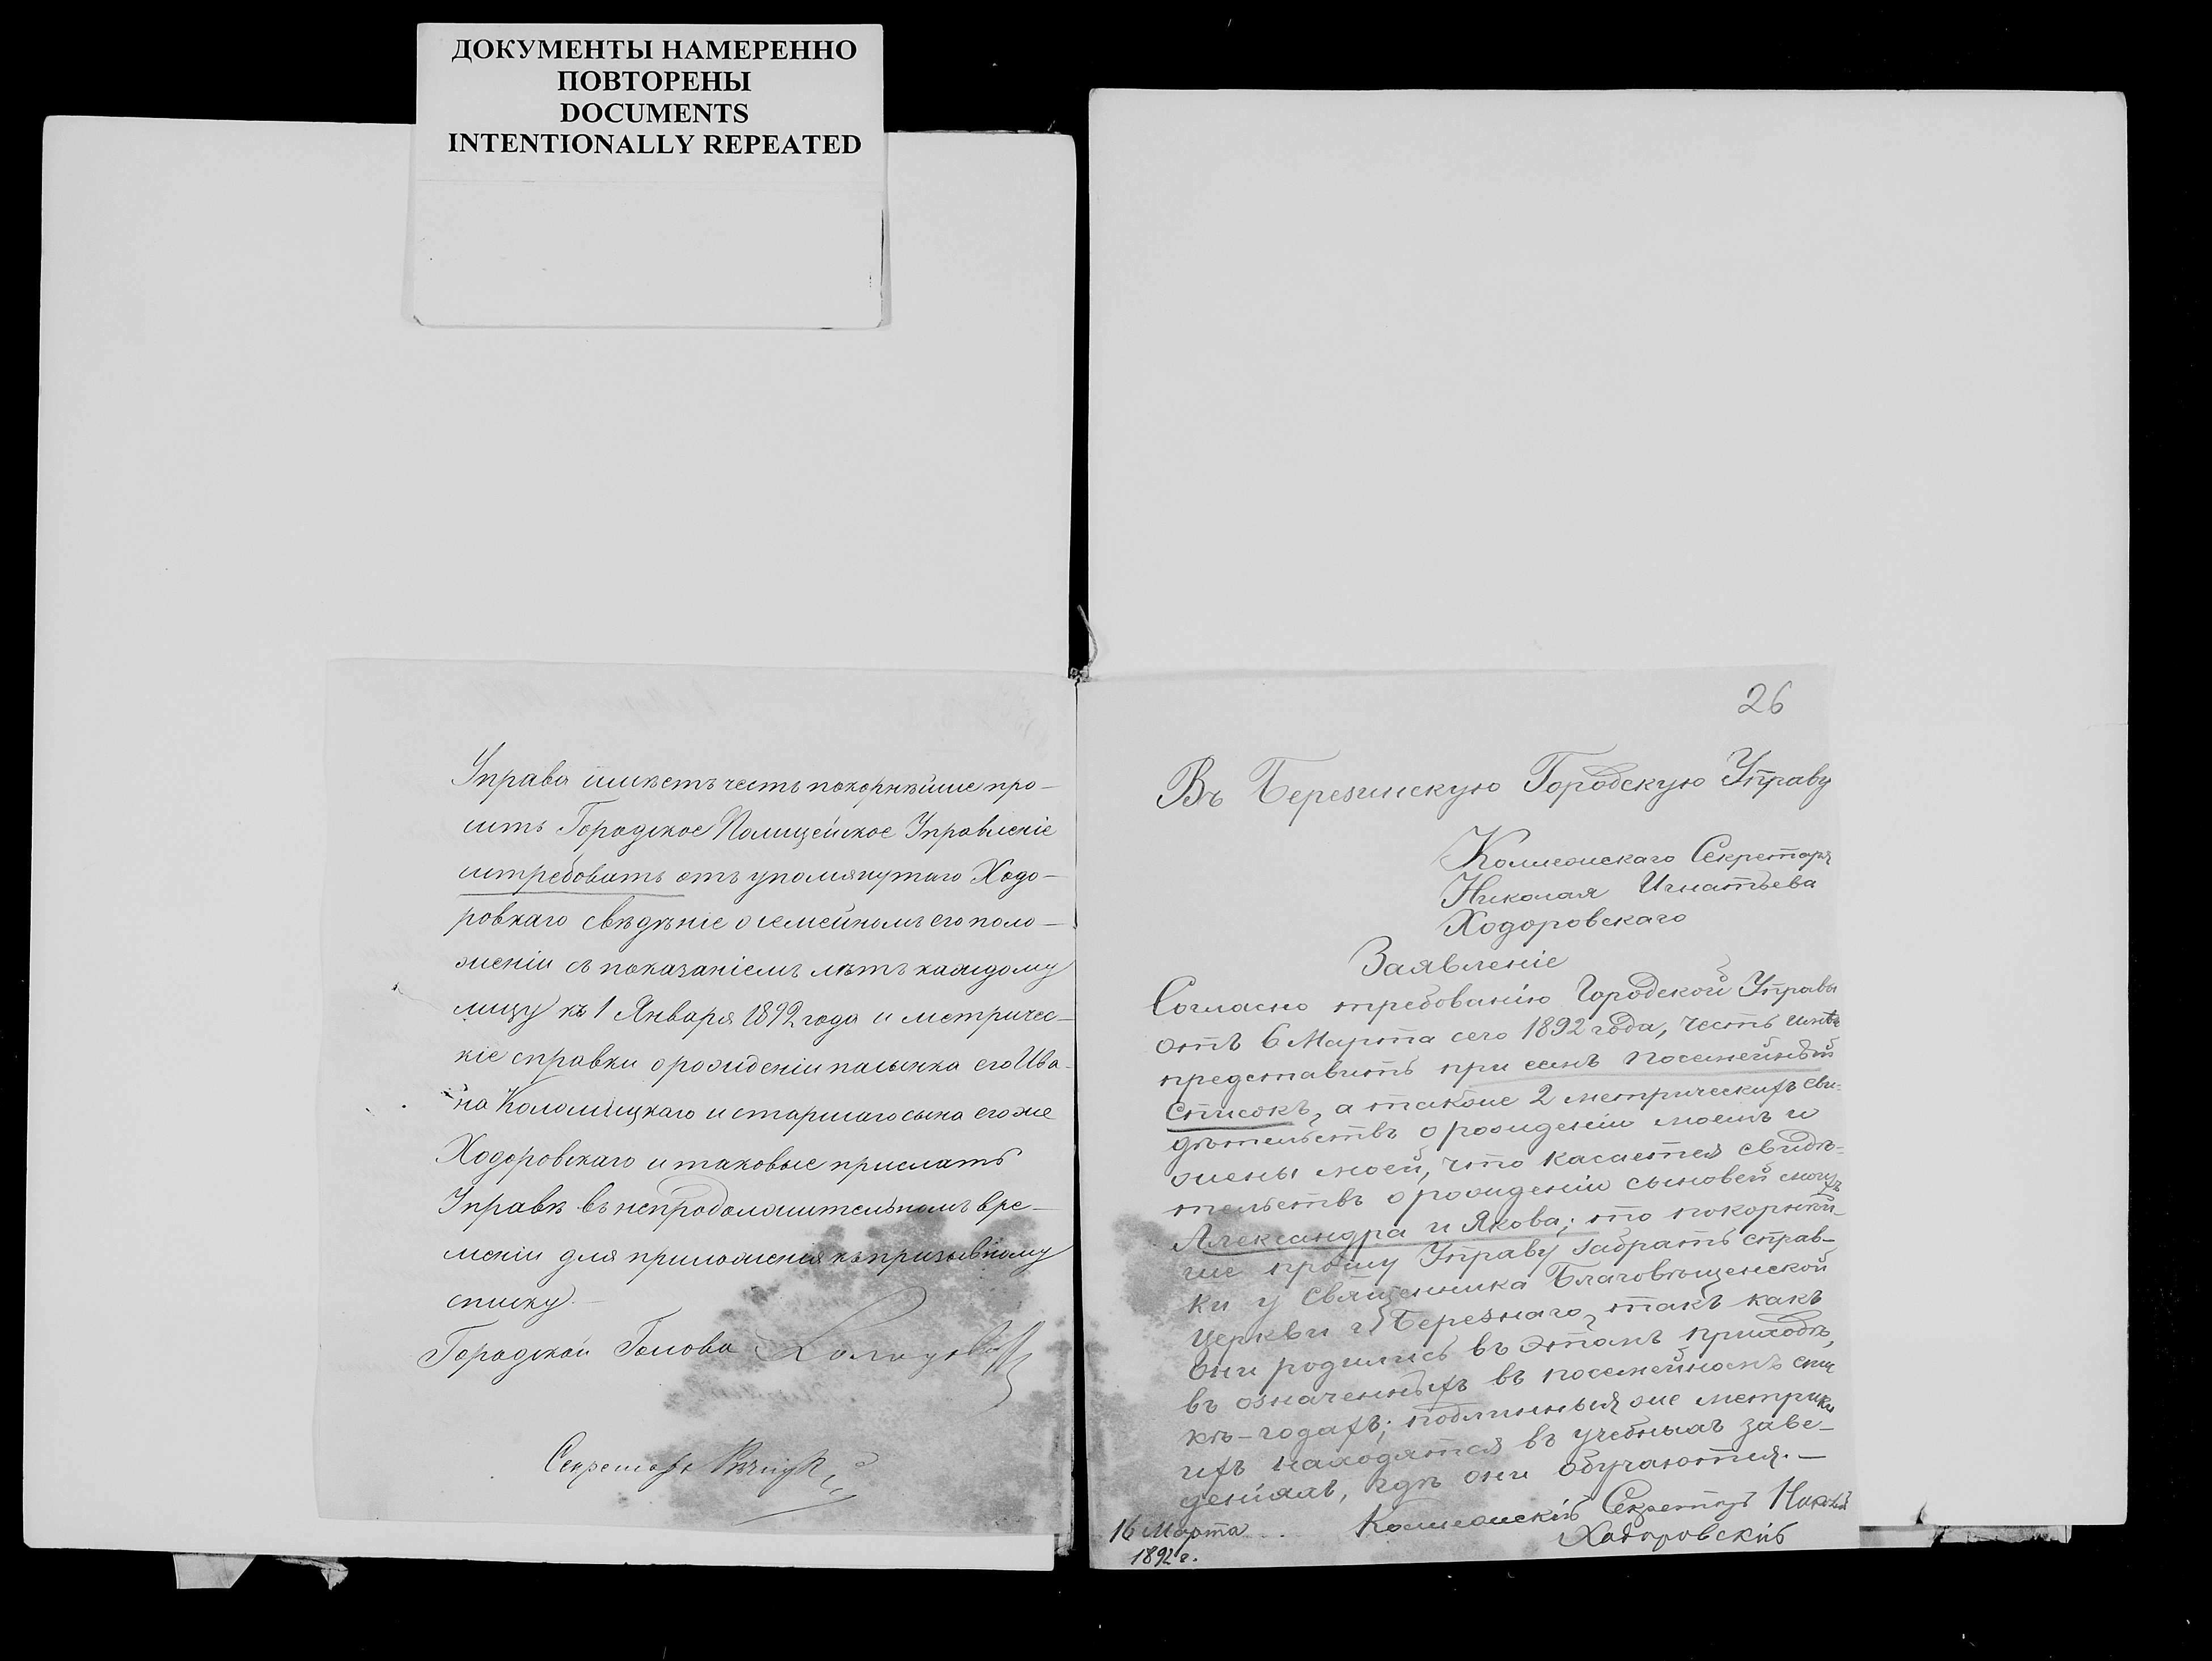 ДОКУМЕНТЫ НАМЕРЕННО
ПОВТОРЕНЫ
DOCUMENTS
INTENTIONALLY REPEATED
Управа имѣетъ честь покорнѣйше про-
сить Городское Полицейское Управленіе
истребовать отъ упомянутаго Ходо-
ровскаго свѣдѣніе о семейномъ его поло-
женіи съ показаніемъ лѣтъ каждому
лицу къ 1 Января 1892 года и метричес-
кіе справки о рожденіи пасынка его Ива-
на Коломійцкаго и старшаго сына его же
Ходоровскаго и таковые прислать
Управѣ въ непродолжительномъ вре-
мени для приложенія къ призывному
списку.
Городской Голова
Секретарь
26
Въ Березинскую Городскую Управу
Коллежскаго Секретаря
Николая Игнатьева
Ходоровскаго
Заявленіе
Согласно требованію Городской Управы
отъ 6 Марта сего 1892 года, честь имѣю
представить при семъ посемейный
списокъ, а также 2 метрическихъ сви-
дѣтельствъ о рожденіи моемъ и
жены моей, что касается свидѣ-
тельствъ о рожденіи сыновей моихъ
Александра и Якова; то покорнѣй-
ше прошу Управу забрать справ-
ки у Священника Благовѣщенской
церкви г. Березнаго, такъ какъ
они родились въ этомъ приходѣ,
въ означенныхъ въ посемейномъ спис
кѣ-годахъ; подлинныя же метрики
ихъ находятся въ учебныхъ заве-
деніяхъ, гдѣ они обучаются.-
Коллежскій Секретарь Николай
Ходоровскій
16 Марта
1892 г.